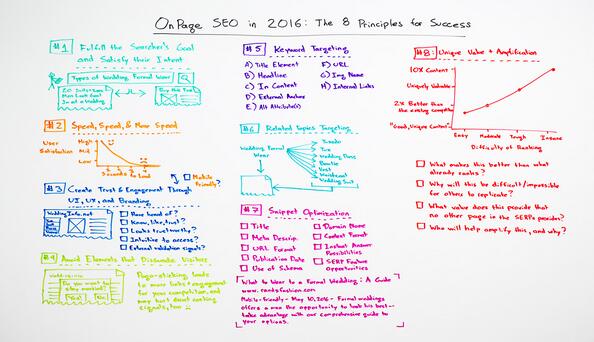 OnPage SEO in 2016: The 8 Principles for Success
#1 Fulfill the Searcher's Goal
and Satisfy their Intent
Types of Wedding Formal Wear
#2 Speed, Speed, & More Speed
User
Satisfaction
High
Mid
Low
Seconds to Load
Mobile
Friendly?
#3 Create Trust & Engagement Through
UI, UX, and Branding
WeddingInfo.net
Ever heard of?
Know, like, trust?
Looks trustworthy?
Intuitive to access?
External validation signals?
#4 Avoid Elements that Dissuade Visitors
Pogo-sticking leads
to more links & engagement
for your competition, and
may hurt direct ranking
signals, too
#5 Keyword Targeting
A) Title Element
B) Headline
C) In Content
D) External Anchors
E) Alt Attribute(s)
F) URL
G) Img Name
H) Internal Links
#6 Related Topics Targeting
Wedding Formal
Wear
Tuxedo
Tie
Wedding Dress
Bowtie
Vest
Wedding Suit
#7 Snippet Optimization
Title
Meta Descrip.
URL Format
Publication Date
Use of Schema
Domain Name
Content Format
Instant Answer
Possibilities
SERP Feature
Opportunities
What to Wear to a Formal Wedding: A Guide
Mobile-friendly - May 10, 2016 - Formal weddings
offers a man the opportunity to look his best -
take advantage with our comprehensive guide to
your options.
#8: Unique Value + Amplification
10X Content
Uniquely Valuable
2X Better than
the existing
"Good, Unique Content"
Easy Moderate Tough Insane
Difficulty of Ranking
What makes this better than what
already ranks?
Why will this be difficult/impossible
for others to replicate?
What value does this provide that
no other page in the SERPs provides?
Who will help amplify this, and why?